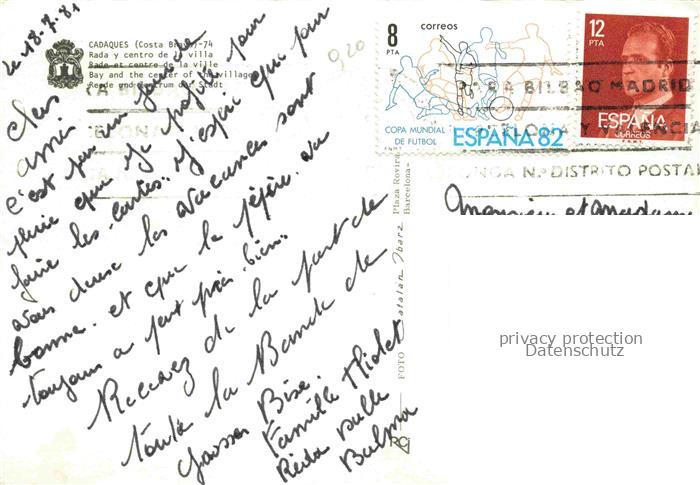 le 18.7.81
CADAQUES (Costa Brava)-74
Rada y centro de la villa
Rade et centre de la ville
Bay and the center of the village
Reede und Zentrum der Stadt
920
Chers
amis
c'est par un jour de
pluie que je profite pour
faire les cartes. J'espère que pour
vous deux les vacances sont
bonne. et que la pépère. va
toujours a peut près bien.
Recevez de la part de
toute la Bande de
Grosses Bise.
Famille Thiolet
8
PTA
correos
COPA MUNDIAL
DE FUTBOL
ESPAÑA 82
12
PTA
ESPAÑA
CORREOS
PARA BILBAO MADRID
Y VALENCIA
PONGA N.º DISTRITO POSTAL
FOTO Catalan Ibarz
Plaza Rovira
Barcelona-
Monsieur et Madame
privacy protection
Datenschutz